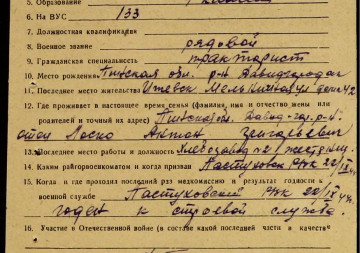 5. Образование
6. На ВУС 133
7. Должностная квалификация
8. Военное звание рядовой
9. Гражданская специальность тракторист
10. Место рождения Пинская обл. р-н Давидгородок
11. Последнее место жительства Ижевск
12. Где проживает в настоящее время семья (фамилия, имя и отчество жены или
родителей и точный их адрес) Пинская обл. Давид-гор. р-н.
отец Лоско Антон
13. Последнее место работы и должность Хлебозавод №2
14. Каким райгорвоенкоматом и когда призван Пастухов. РВК 22/IX 44
15. Когда и где проходил последний раз медкомиссию и результат годности к
военной службе Пастуховский РВК 22/IX 44
годен к строевой службе.
16. Участие в Отечественной войне (в составе какой последней части в качестве